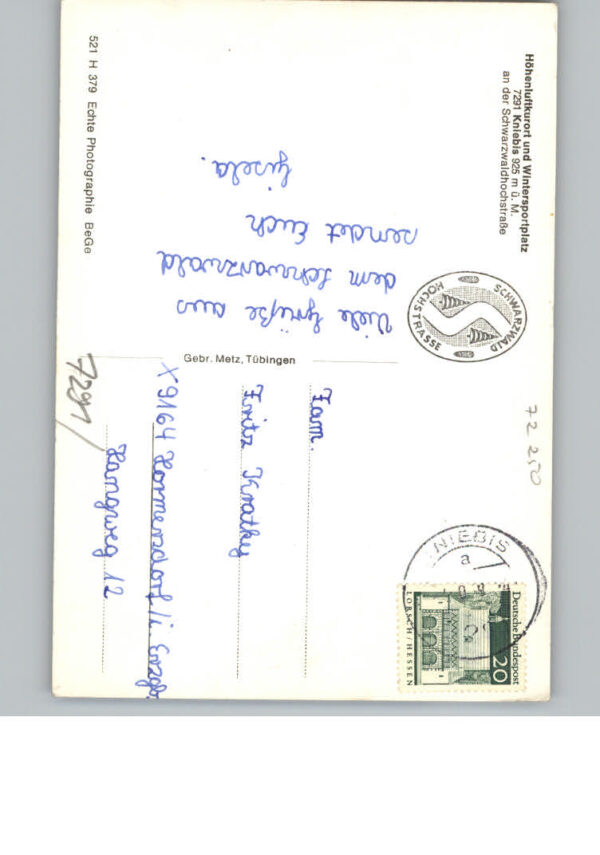 Höhenluftkurort und Wintersportplatz
7291 Kniebis 925 m ü. M.
an der Schwarzwaldhochstraße
SCHWARZWALD
HOCHSTRASSE
Viele Grüße aus
dem Schwarzwald
sendet Euch
Gisela.
521 H 379 Echte Photographie BeGe
Gebr. Metz, Tübingen
72 250
KNIEBIS
a
Deutsche Bundespost
20
LORSCH/HESSEN
Fam.
Fritz Kratky
X9164 Hormersdorf/i. Erzgb.
Hangweg 12
7291/